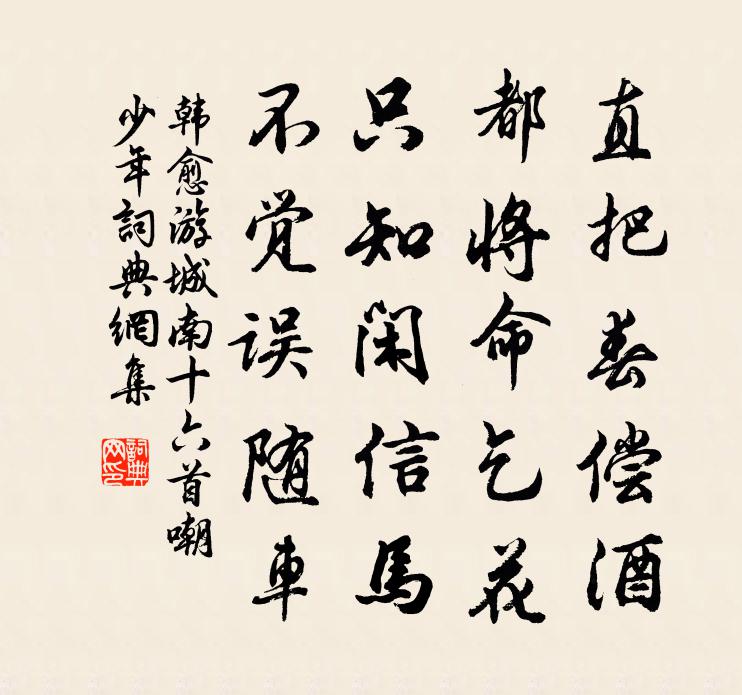 直把春偿酒
都将命乞花
只知闲信馬
不觉误随車
韩愈游城南十六首嘲
少年詞典網集
詞典
网印